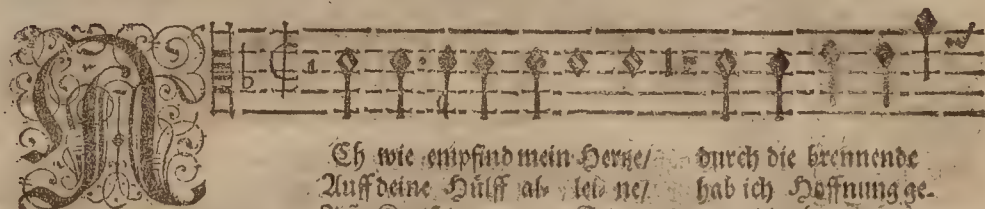 ACh wie empfind mein Hertze/ durch die brennende
Auff deine Hülff al- lei- ne/ hab ich Hoffnung ge-